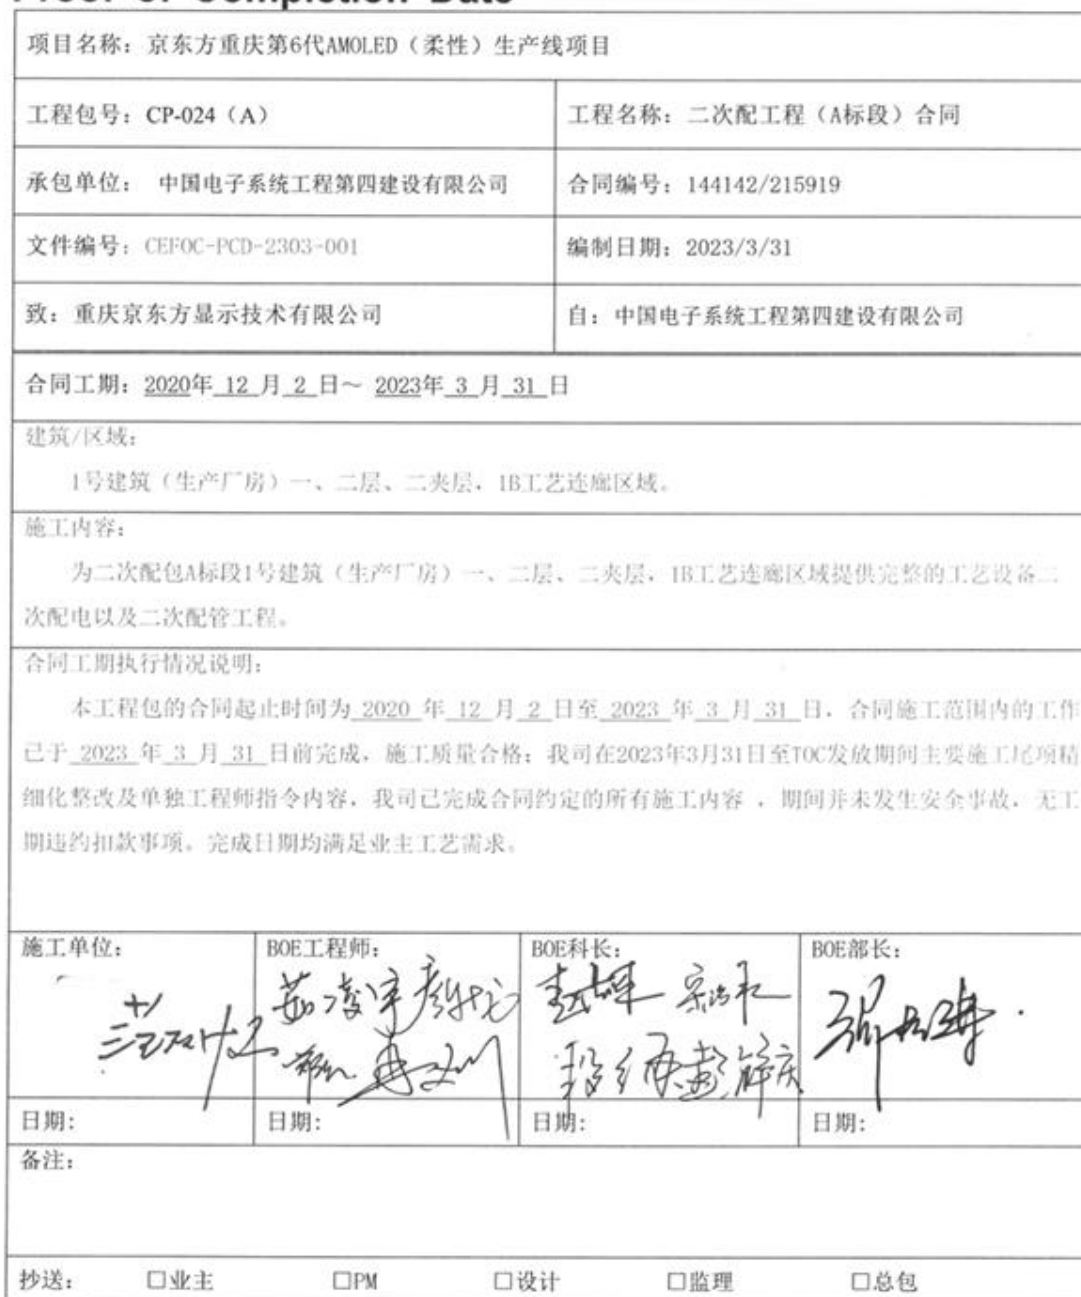 Proof of Completion Date
项目名称：京东方重庆第6代AMOLED（柔性）生产线项目
工程包号：CP-024（A） 工程名称：二次配工程（A标段）合同
承包单位： 中国电子系统工程第四建设有限公司 合同编号：144142/215919
文件编号：CEFOC-PCD-2303-001 编制日期：2023/3/31
致：重庆京东方显示技术有限公司 自：中国电子系统工程第四建设有限公司
合同工期：2020年 12 月 2 日～ 2023年 3 月 31 日
建筑/区域：
1号建筑（生产厂房）一、二层、二夹层，1B工艺连廊区域。
施工内容：
为二次配包A标段1号建筑（生产厂房）一、二层、二夹层，1B工艺连廊区域提供完整的工艺设备二
次配电以及二次配管工程。
合同工期执行情况说明：
本工程包的合同起止时间为 2020 年 12 月 2 日至 2023 年 3 月 31 日，合同施工范围内的工作
已于 2023 年 3 月 31 日前完成，施工质量合格；我司在2023年3月31日至TOC发放期间主要施工尾项精
细化整改及单独工程师指令内容，我司已完成合同约定的所有施工内容 ，期间并未发生安全事故，无工
期违约扣款事项。完成日期均满足业主工艺需求。
施工单位： BOE工程师： BOE科长： BOE部长：
日期： 日期： 日期： 日期：
备注：
抄送： □业主 □PM □设计 □监理 □总包